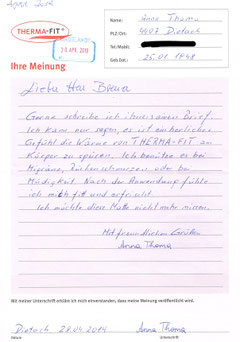 April 2014
THERMA-FIT®
30. APR. 2019
Name: Anna Thoma
PLZ/Ort: 4107 Dietach
Tel/Mobil:
Geb.Dat.: 25.01.1948
Ihre Meinung
Lieber Herr
Gerne schreibe ich Ihnen einen Brief.
Ich kann nur sagen, es ist ein herrliches
Gefühl die Wärme von THERMA-FIT am
Körper zu spüren. Ich benütze es bei
Migräne, Rückenschmerzen oder bei
Müdigkeit. Nach der Anwendung fühle
ich mich fit und erfrischt.
Ich möchte diese Matte nicht mehr missen.
Mit freundlichen Grüßen
Anna Thoma
Mit meiner Unterschrift erkläre ich mich einverstanden, dass meine Meinung veröffentlicht wird.
Dietach 28.04.2014 Anna Thoma
Datum Unterschrift